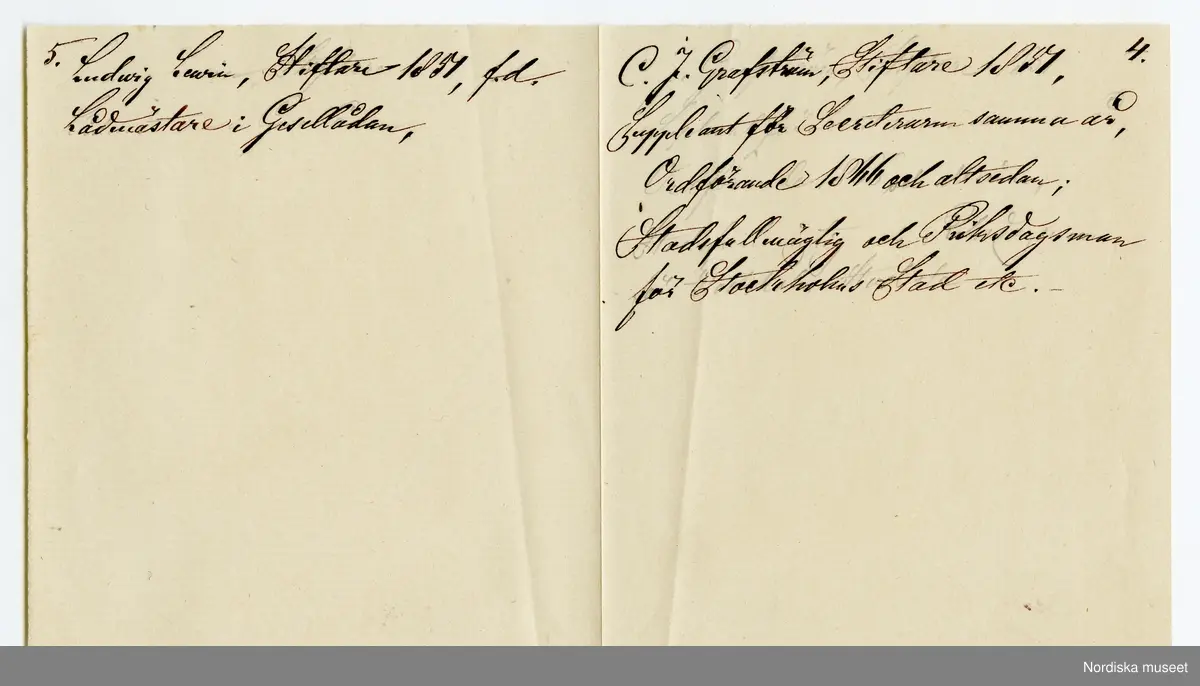 5.
Ludwig Lewin, Stiftare 1851, f.d.
Lådmästare i Gesellådan,
4.
C. J. Grafström, Stiftare 1851,
Suppleant för Secreteraren samma år,
Ordförande 1866 och altsedan;
Stadsfullmäglig och Riksdagsman
för Stockholms Stad etc. –
Nordiska museet